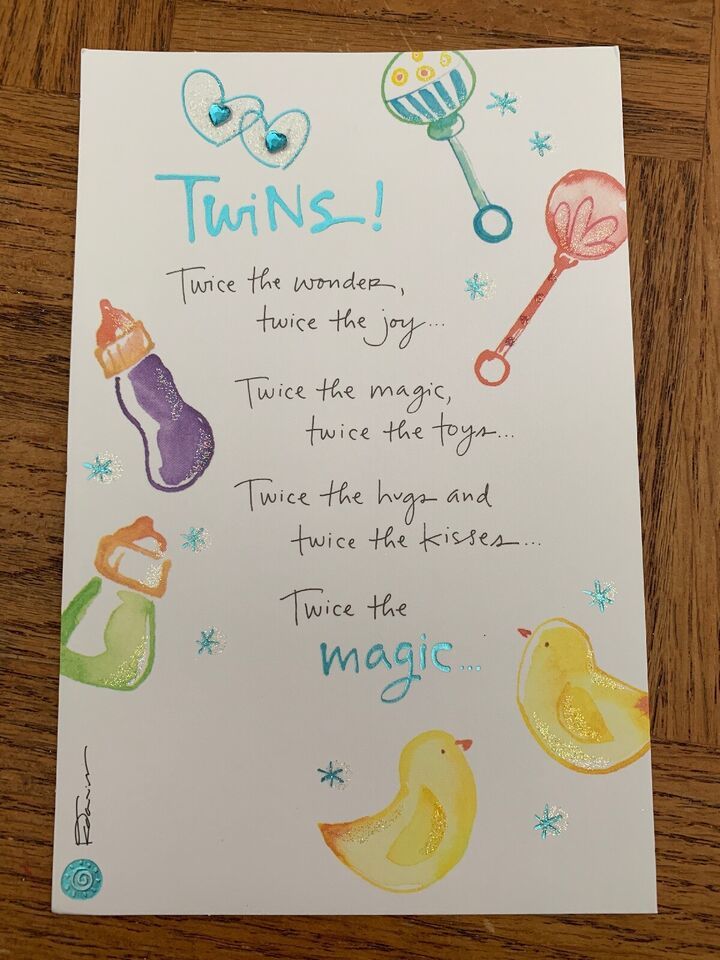 Twins!
Twice the wonder,
twice the joy...
Twice the magic,
twice the toys...
Twice the hugs and
twice the kisses...
Twice the
magic...